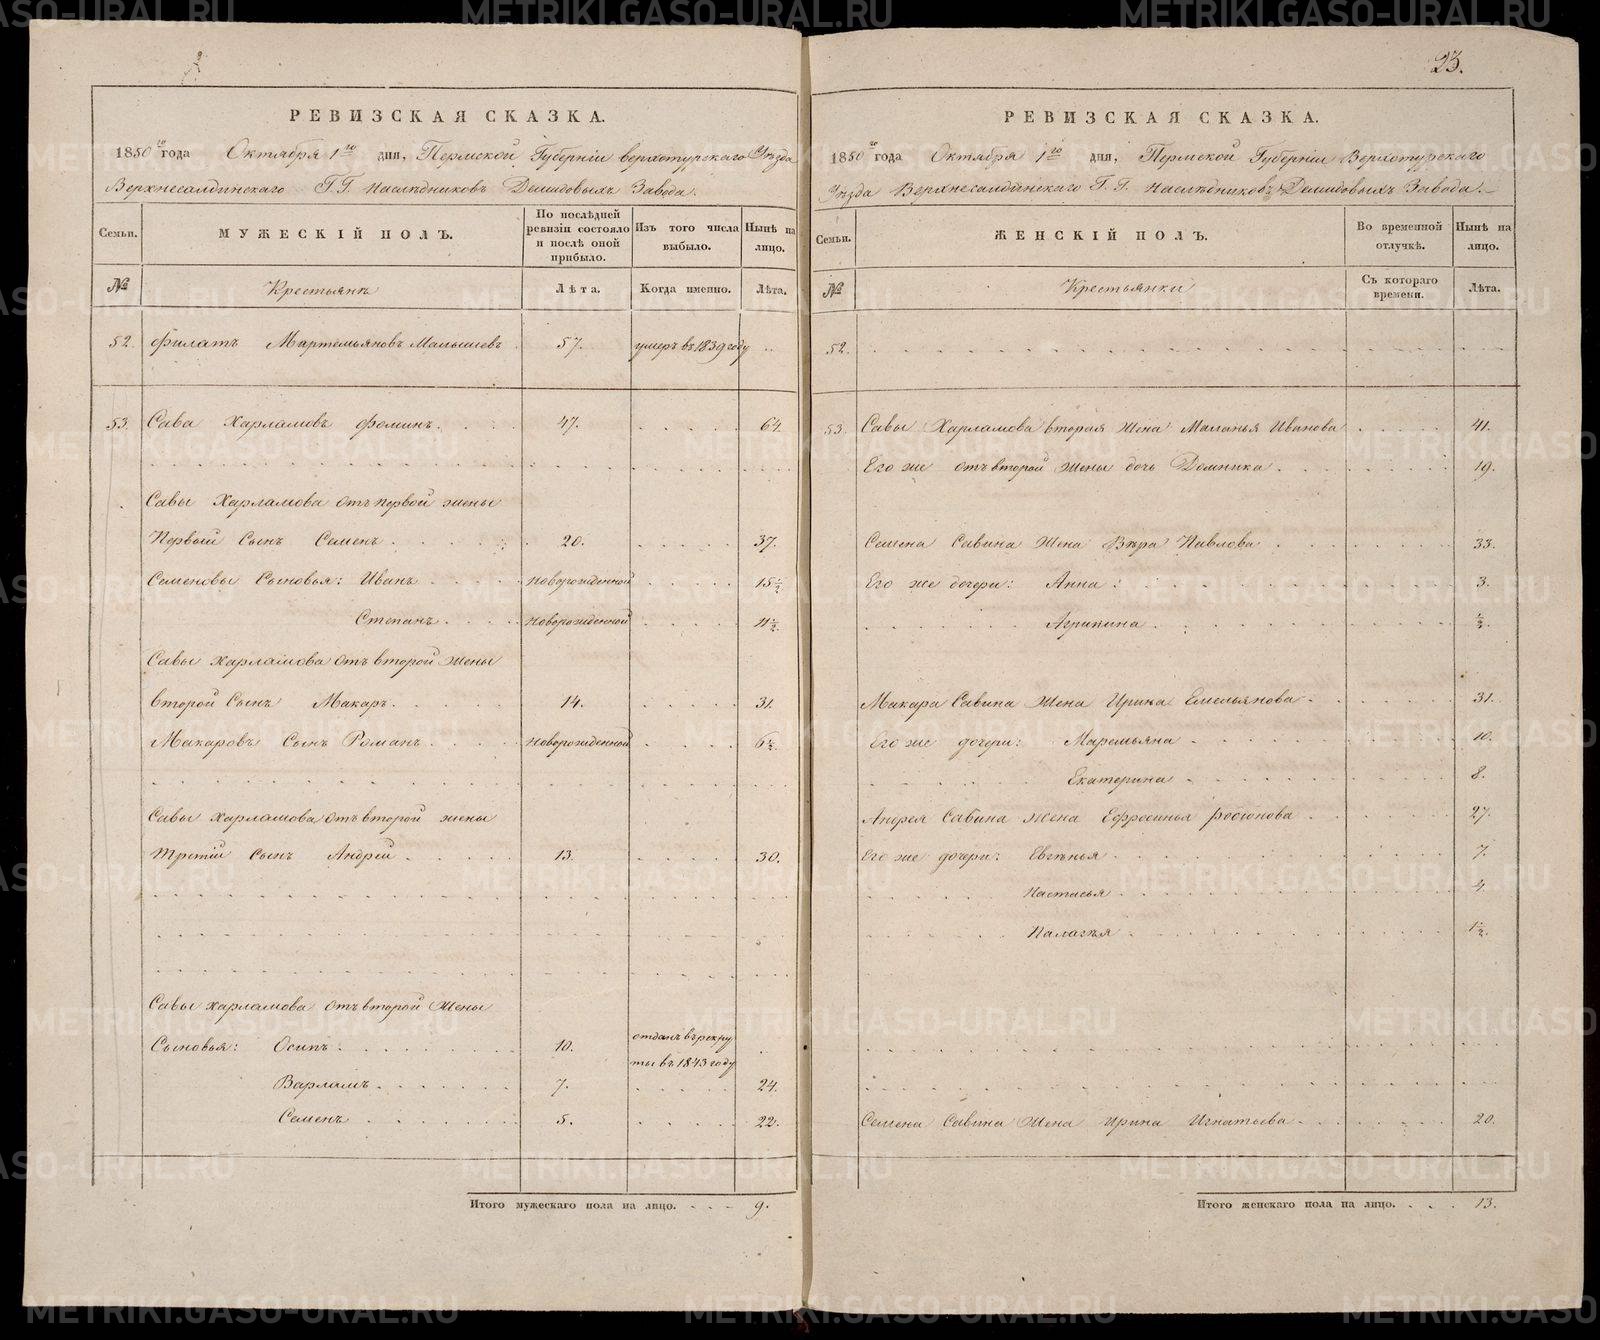 23.
РЕВИЗСКАЯ СКАЗКА.
1850го года Октября 1го дня, Пермской Губернiи верхотурскаго Уѣзда
Верхнесалдинскаго Г.Г. Наслѣдниковъ Демидовыхъ Завода.
Семьи. МУЖЕСКIЙ ПОЛЪ. По послѣдней ревизiи состояло и послѣ оной прибыло. Изъ того числа выбыло. Нынѣ на лицо.
№ Крестьянъ Лѣта. Когда именно. Лѣта.
52. Филатъ Мартемьяновъ Малышевъ 57. умеръ въ 1839 году
53. Сава Харламовъ Фоминъ 47. 64.
Савы Харламова отъ первой жены
Первый Сынъ Семенъ 20. 37.
Семеновы Сыновья: Иванъ новорожденной 15½
Степанъ новорожденной 11½
Савы харламова отъ второй жены
второй Сынъ Макаръ 14. 31.
Макаровъ Сынъ Романъ новорожденной 6½.
Савы харламова отъ второй жены
третiй Сынъ Андрей 13. 30.
Савы харламова отъ второй Жены
Сыновья: Осипъ 10. отданъ въ рекру
ты въ 1843 году
Варламъ 7. 24.
Семенъ 5. 22.
Итого мужескаго пола на лицо. 9.
РЕВИЗСКАЯ СКАЗКА.
1850го года Октября 1го дня, Пермской Губернiи Верхотурскаго
Уѣзда Верхнесалдинскаго Г.Г. Наслѣдниковъ Демидовыхъ Завода.
Семьи. ЖЕНСКIЙ ПОЛЪ. Во временной отлучкѣ. Нынѣ на лицо.
№ Крестьянки Съ котораго времени. Лѣта.
52.
53. Савы Харламова вторая Жена Маланья Иванова 41.
Его же отъ второй жены дочь Домника 19.
Семена Савина Жена Вѣра Павлова 33.
Его же дочери: Анна 3.
Агрипина ½.
Макара Савина Жена Ирина Емельянова 31.
Его же дочери: Маремьяна 10.
Екатерина 8.
Андрея Савина жена Ефросинья Родiонова 27.
Его же дочери: Евгѣнья 7.
Настасья 4.
Палагѣя 1½.
Семена Савина Жена Ирина Игнатьева 20.
Итого женскаго пола на лицо. 13.
METRIKI.GASO-URAL.RU